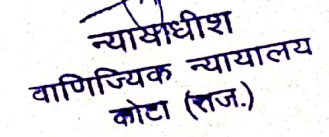 न्यायाधीश
वाणिज्यिक न्यायालय
कोटा (राज.)